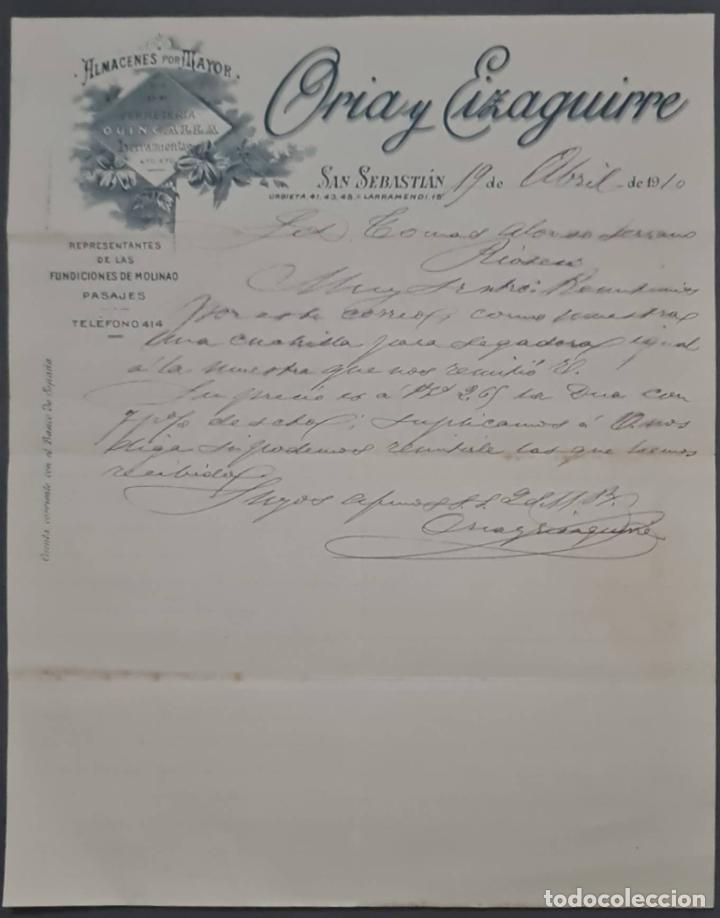 ALMACENES POR MAYOR
DE
FERRETERIA
QUINCALLA
Herramientas
ETC. ETC.
Oria y Eizaguirre
SAN SEBASTIÁN 19 de Abril de 1910
URBIETA, 41, 43, 45. LARRAMENDI, 15
REPRESENTANTES
DE LAS
FUNDICIONES DE MOLINAO
PASAJES
TELÉFONO 414
Cuenta corriente con el Banco de España
Tomas Alonso Serrano
Rioseco
Muy Sr ntro: Remitimos
por este correo, como muestra
una cuchilla para segadora igual
á la muestra que nos remitió V.
Su precio es á Pts 2.65 la Dna con
% descto; suplicamos á V nos
diga si podemos remitirle las que hemos
recibido.
Suyos afmos s.s. Q.S.M.B.
Oria y Eizaguirre
todocoleccion